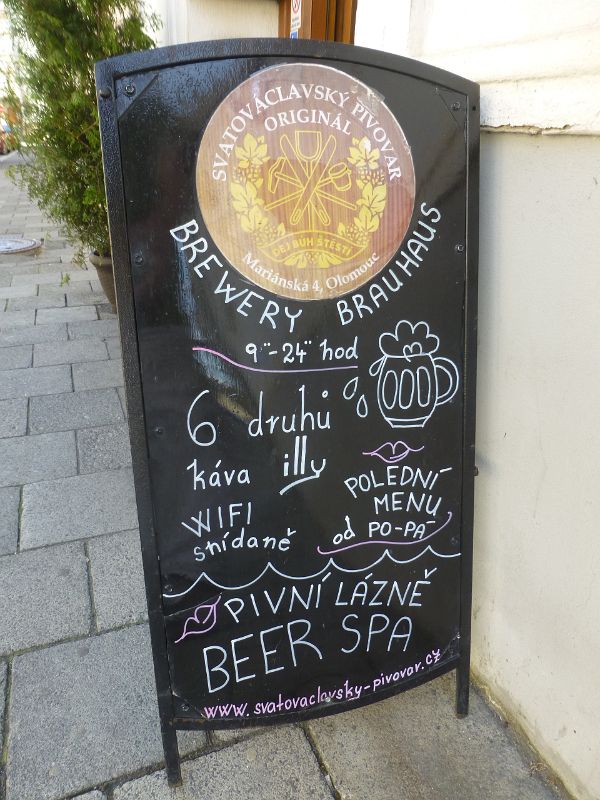 SVATOVÁCLAVSKÝ PIVOVAR
ORIGINÁL
DEJ BŮH ŠTĚSTÍ
Mariánská 4, Olomouc
BREWERY BRAUHAUS
9⁰⁰-24⁰⁰ hod
6 druhů
káva illy
WIFI
snídaně
POLEDNÍ
MENU
od PO-PÁ
PIVNÍ LÁZNĚ
BEER SPA
www.svatovaclavsky-pivovar.cz